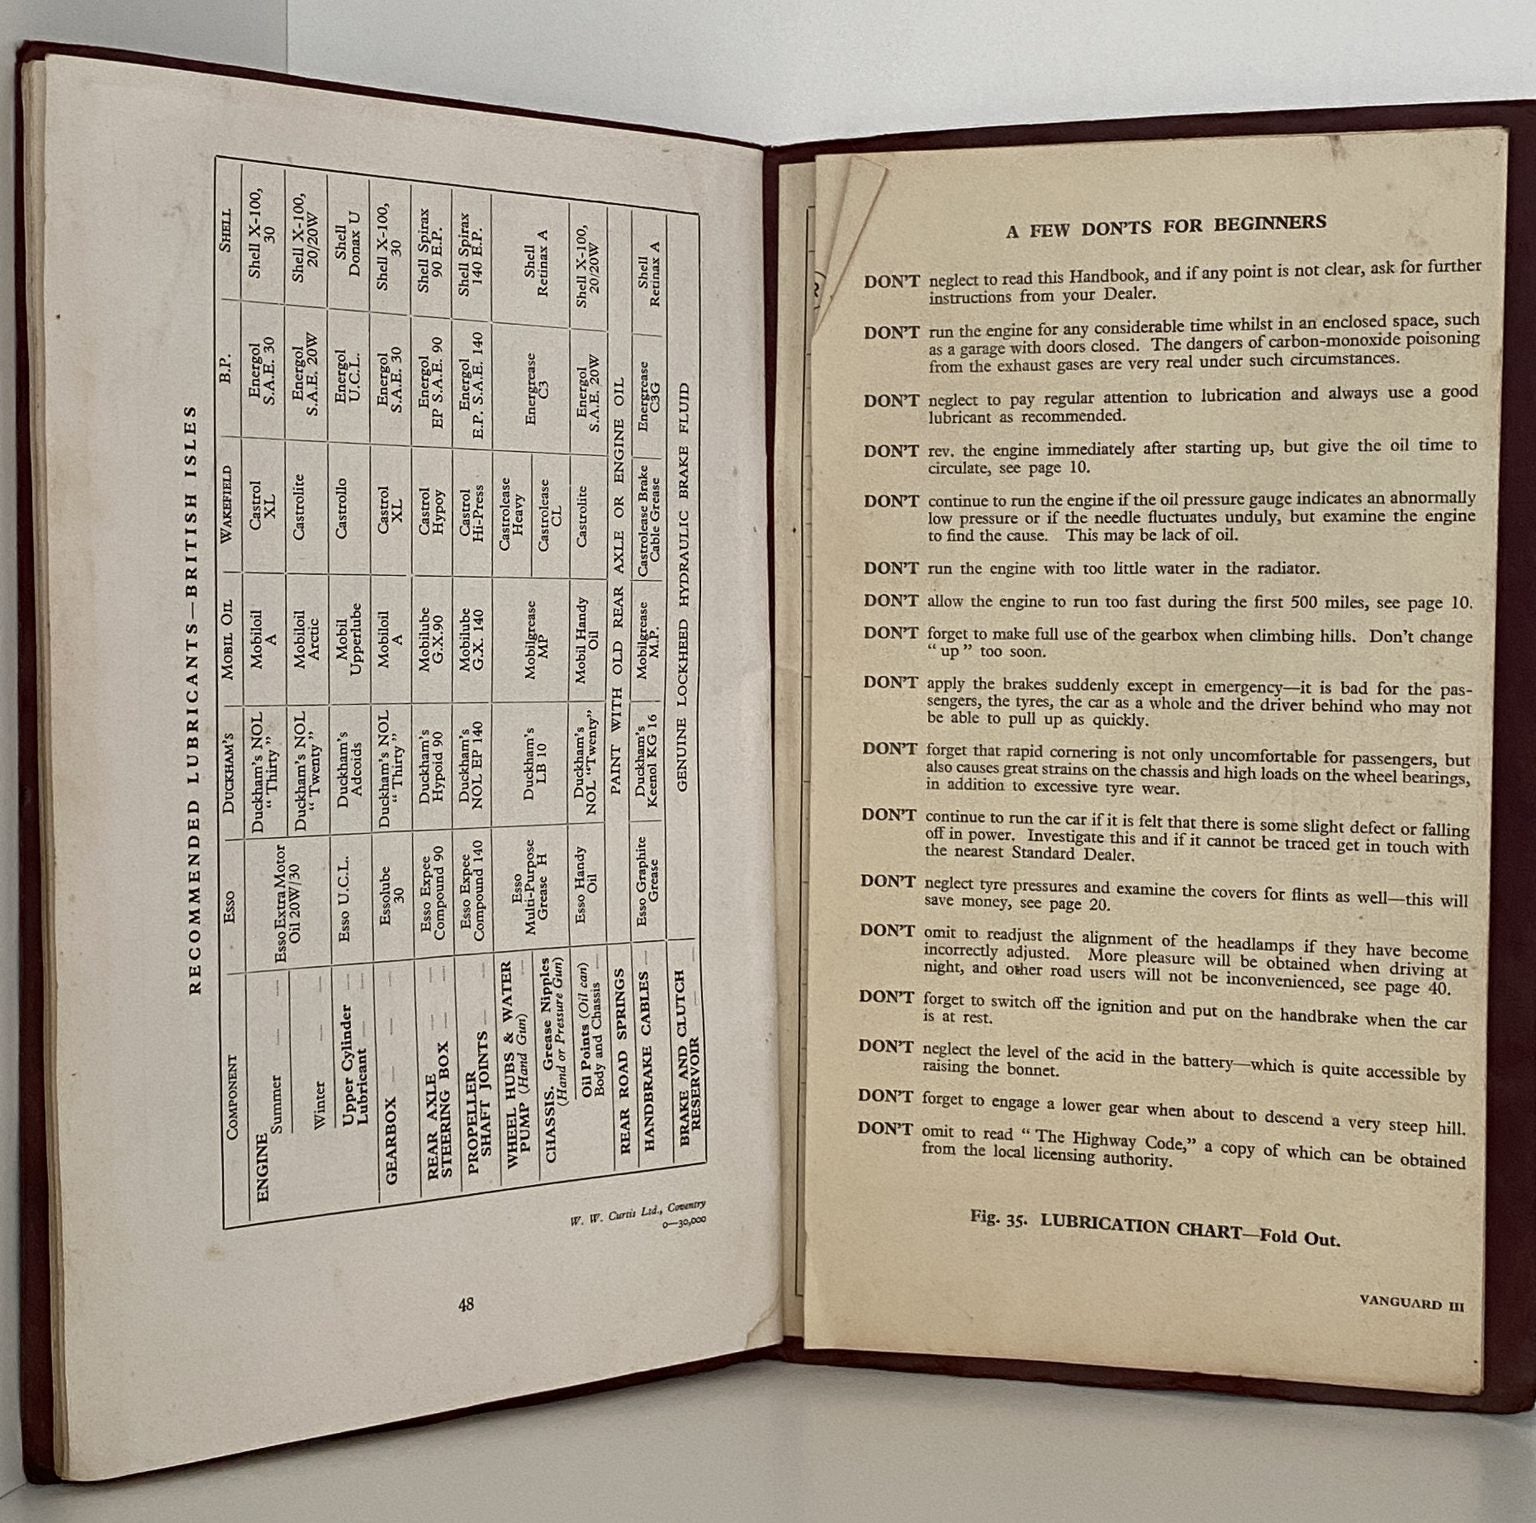 RECOMMENDED LUBRICANTS—BRITISH ISLES
COMPONENT ESSO DUCKHAM'S MOBIL OIL WAKEFIELD B.P. SHELL
ENGINE
Summer — — Esso Extra Motor Oil 20W/30 Duckham's NOL “ Thirty ” Mobiloil A Castrol XL Energol S.A.E. 30 Shell X-100, 30
Winter — — Duckham's NOL “ Twenty ” Mobiloil Arctic Castrolite Energol S.A.E. 20W Shell X-100, 20/20W
Upper Cylinder Lubricant — — Esso U.C.L. Duckham's Adcoids Mobil Upperlube Castrollo Energol U.C.L. Shell Donax U
GEARBOX — — — Essolube 30 Duckham's NOL “ Thirty ” Mobiloil A Castrol XL Energol S.A.E. 30 Shell X-100, 30
REAR AXLE — — STEERING BOX — — Esso Expee Compound 90 Duckham's Hypoid 90 Mobilube G.X.90 Castrol Hypoy Energol EP S.A.E. 90 Shell Spirax 90 E.P.
PROPELLER SHAFT JOINTS — — Esso Expee Compound 140 Duckham's NOL EP 140 Mobilube G.X. 140 Castrol Hi-Press Energol E.P. S.A.E. 140 Shell Spirax 140 E.P.
WHEEL HUBS & WATER PUMP (Hand Gun) — Esso Multi-Purpose Grease H Duckham's LB 10 Mobilgrease MP Castrolease Heavy Energrease C3 Shell Retinax A
CHASSIS. Grease Nipples (Hand or Pressure Gun) Castrolease CL
Oil Points (Oil can) Body and Chassis — Esso Handy Oil Duckham's NOL “Twenty” Mobil Handy Oil Castrolite Energol S.A.E. 20W Shell X-100, 20/20W
REAR ROAD SPRINGS PAINT WITH OLD REAR AXLE OR ENGINE OIL
HANDBRAKE CABLES — Esso Graphite Grease Duckham's Keenol KG 16 Mobilgrease M.P. Castrolease Brake Cable Grease Energrease C3G Shell Retinax A
BRAKE AND CLUTCH RESERVOIR — — GENUINE LOCKHEED HYDRAULIC BRAKE FLUID
W. W. Curtis Ltd., Coventry
0—30,000
48
A FEW DON'TS FOR BEGINNERS
DON'T neglect to read this Handbook, and if any point is not clear, ask for further
instructions from your Dealer.
DON'T run the engine for any considerable time whilst in an enclosed space, such
as a garage with doors closed. The dangers of carbon-monoxide poisoning
from the exhaust gases are very real under such circumstances.
DON'T neglect to pay regular attention to lubrication and always use a good
lubricant as recommended.
DON'T rev. the engine immediately after starting up, but give the oil time to
circulate, see page 10.
DON'T continue to run the engine if the oil pressure gauge indicates an abnormally
low pressure or if the needle fluctuates unduly, but examine the engine
to find the cause. This may be lack of oil.
DON'T run the engine with too little water in the radiator.
DON'T allow the engine to run too fast during the first 500 miles, see page 10.
DON'T forget to make full use of the gearbox when climbing hills. Don't change
“ up ” too soon.
DON'T apply the brakes suddenly except in emergency—it is bad for the pas-
sengers, the tyres, the car as a whole and the driver behind who may not
be able to pull up as quickly.
DON'T forget that rapid cornering is not only uncomfortable for passengers, but
also causes great strains on the chassis and high loads on the wheel bearings,
in addition to excessive tyre wear.
DON'T continue to run the car if it is felt that there is some slight defect or falling
off in power. Investigate this and if it cannot be traced get in touch with
the nearest Standard Dealer.
DON'T neglect tyre pressures and examine the covers for flints as well—this will
save money, see page 20.
DON'T omit to readjust the alignment of the headlamps if they have become
incorrectly adjusted. More pleasure will be obtained when driving at
night, and other road users will not be inconvenienced, see page 40.
DON'T forget to switch off the ignition and put on the handbrake when the car
is at rest.
DON'T neglect the level of the acid in the battery—which is quite accessible by
raising the bonnet.
DON'T forget to engage a lower gear when about to descend a very steep hill.
DON'T omit to read “ The Highway Code,” a copy of which can be obtained
from the local licensing authority.
Fig. 35. LUBRICATION CHART—Fold Out.
VANGUARD III